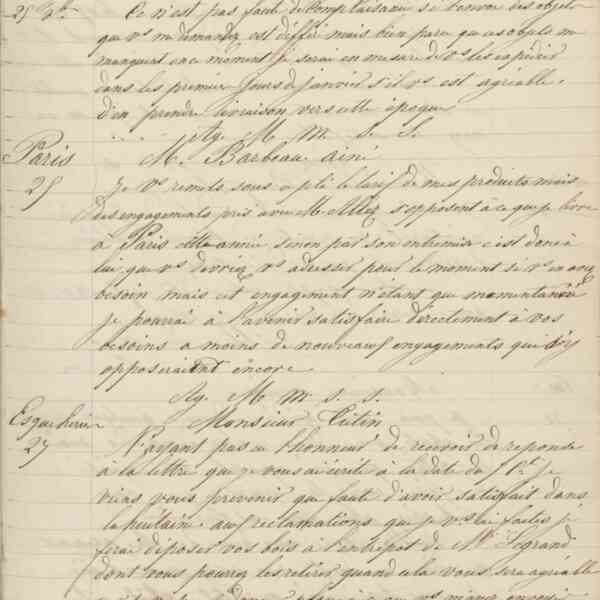 25 Xbre Ce n'est pas faute de complaisance si l'envoi des objets
que vs me demandez est différé mais bien parce que ces objets me
manquent en ce moment je serai en mesure de vs les expédier
dans les premiers jours de janvier s'il vs est agréable
d'en prendre livraison vers cette époque
Ag. M m s S.
Paris M. Barbeau ainé
25 Je vs remets sous ce pli le tarif de mes produits mais
des engagements pris avec M. s'opposent à ce que je livre
à Paris cette année sinon par son entremise c'est donc à
lui que vs devriez vs adresser pour le moment si vs en avez
besoin mais cet engagement n'étant que momentanné
je pourrai à l'avenir satisfaire directement à vos
besoins à moins de nouveaux engagements qui s'y
opposeraient encore
Ag. M m s s.
Monsieur Cutin
27 N'ayant pas eu l'honneur de recevoir de réponse
à la lettre que je vous ai écrite à la date du je
viens vous prévenir que faute d'avoir satisfait dans
la huitaine aux réclamations que je vs ai faites je
ferai déposer vos bois à l'entrepot de Mr Legrand
dont vous pourrez les retirer quand cela vous sera agréable